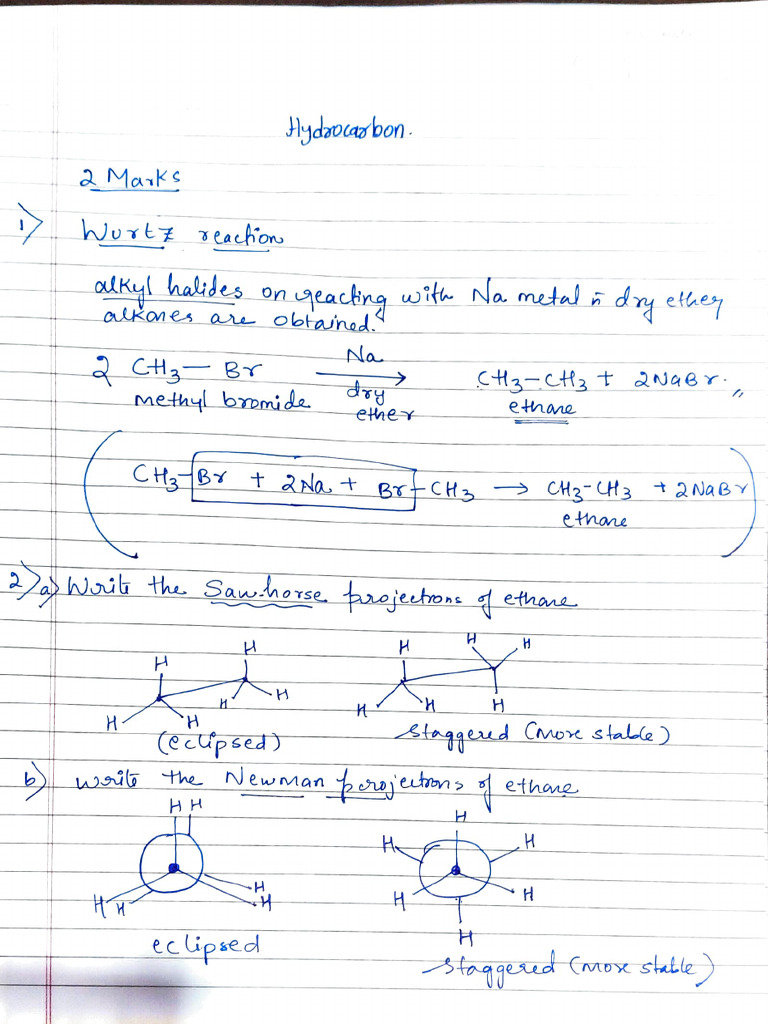 Hydrocarbon.
2 Marks
1) Wurtz reaction
alkyl halides on reacting with Na metal in dry ether
alkanes are obtained.
2 CH3 — Br Na → dry ether CH3–CH3 + 2NaBr.,,
methyl bromide ethane
(CH3–Br + 2Na + Br–CH3 → CH3–CH3 + 2NaBr)
ethane
2) a) Write the Saw-horse projections of ethane
H H H H H
H H H H H H H
(eclipsed) Staggered (more stable)
b) write the Newman projections of ethane
H H H
H H
H H H H H H
H
eclipsed
Staggered (more stable)